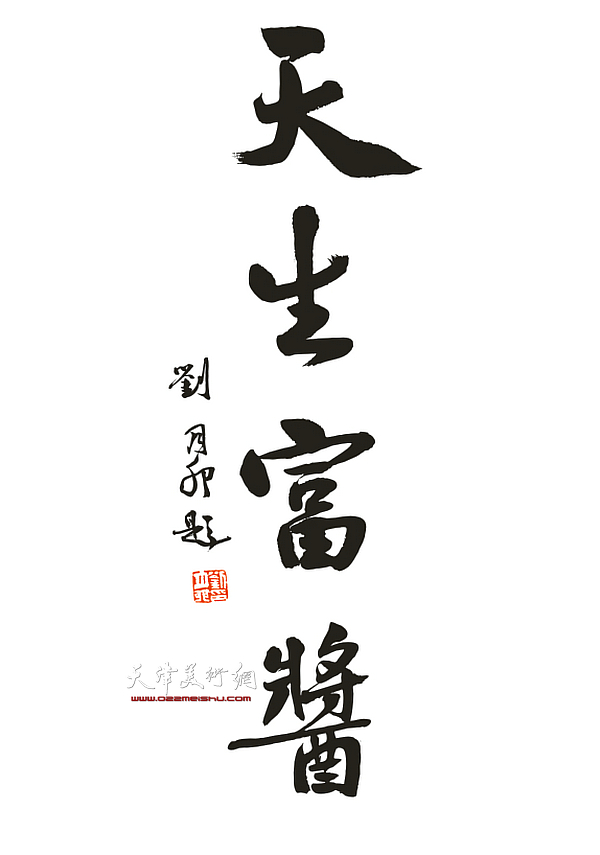 天生富醬
劉月卯題
天津美術網
www.022meishu.com